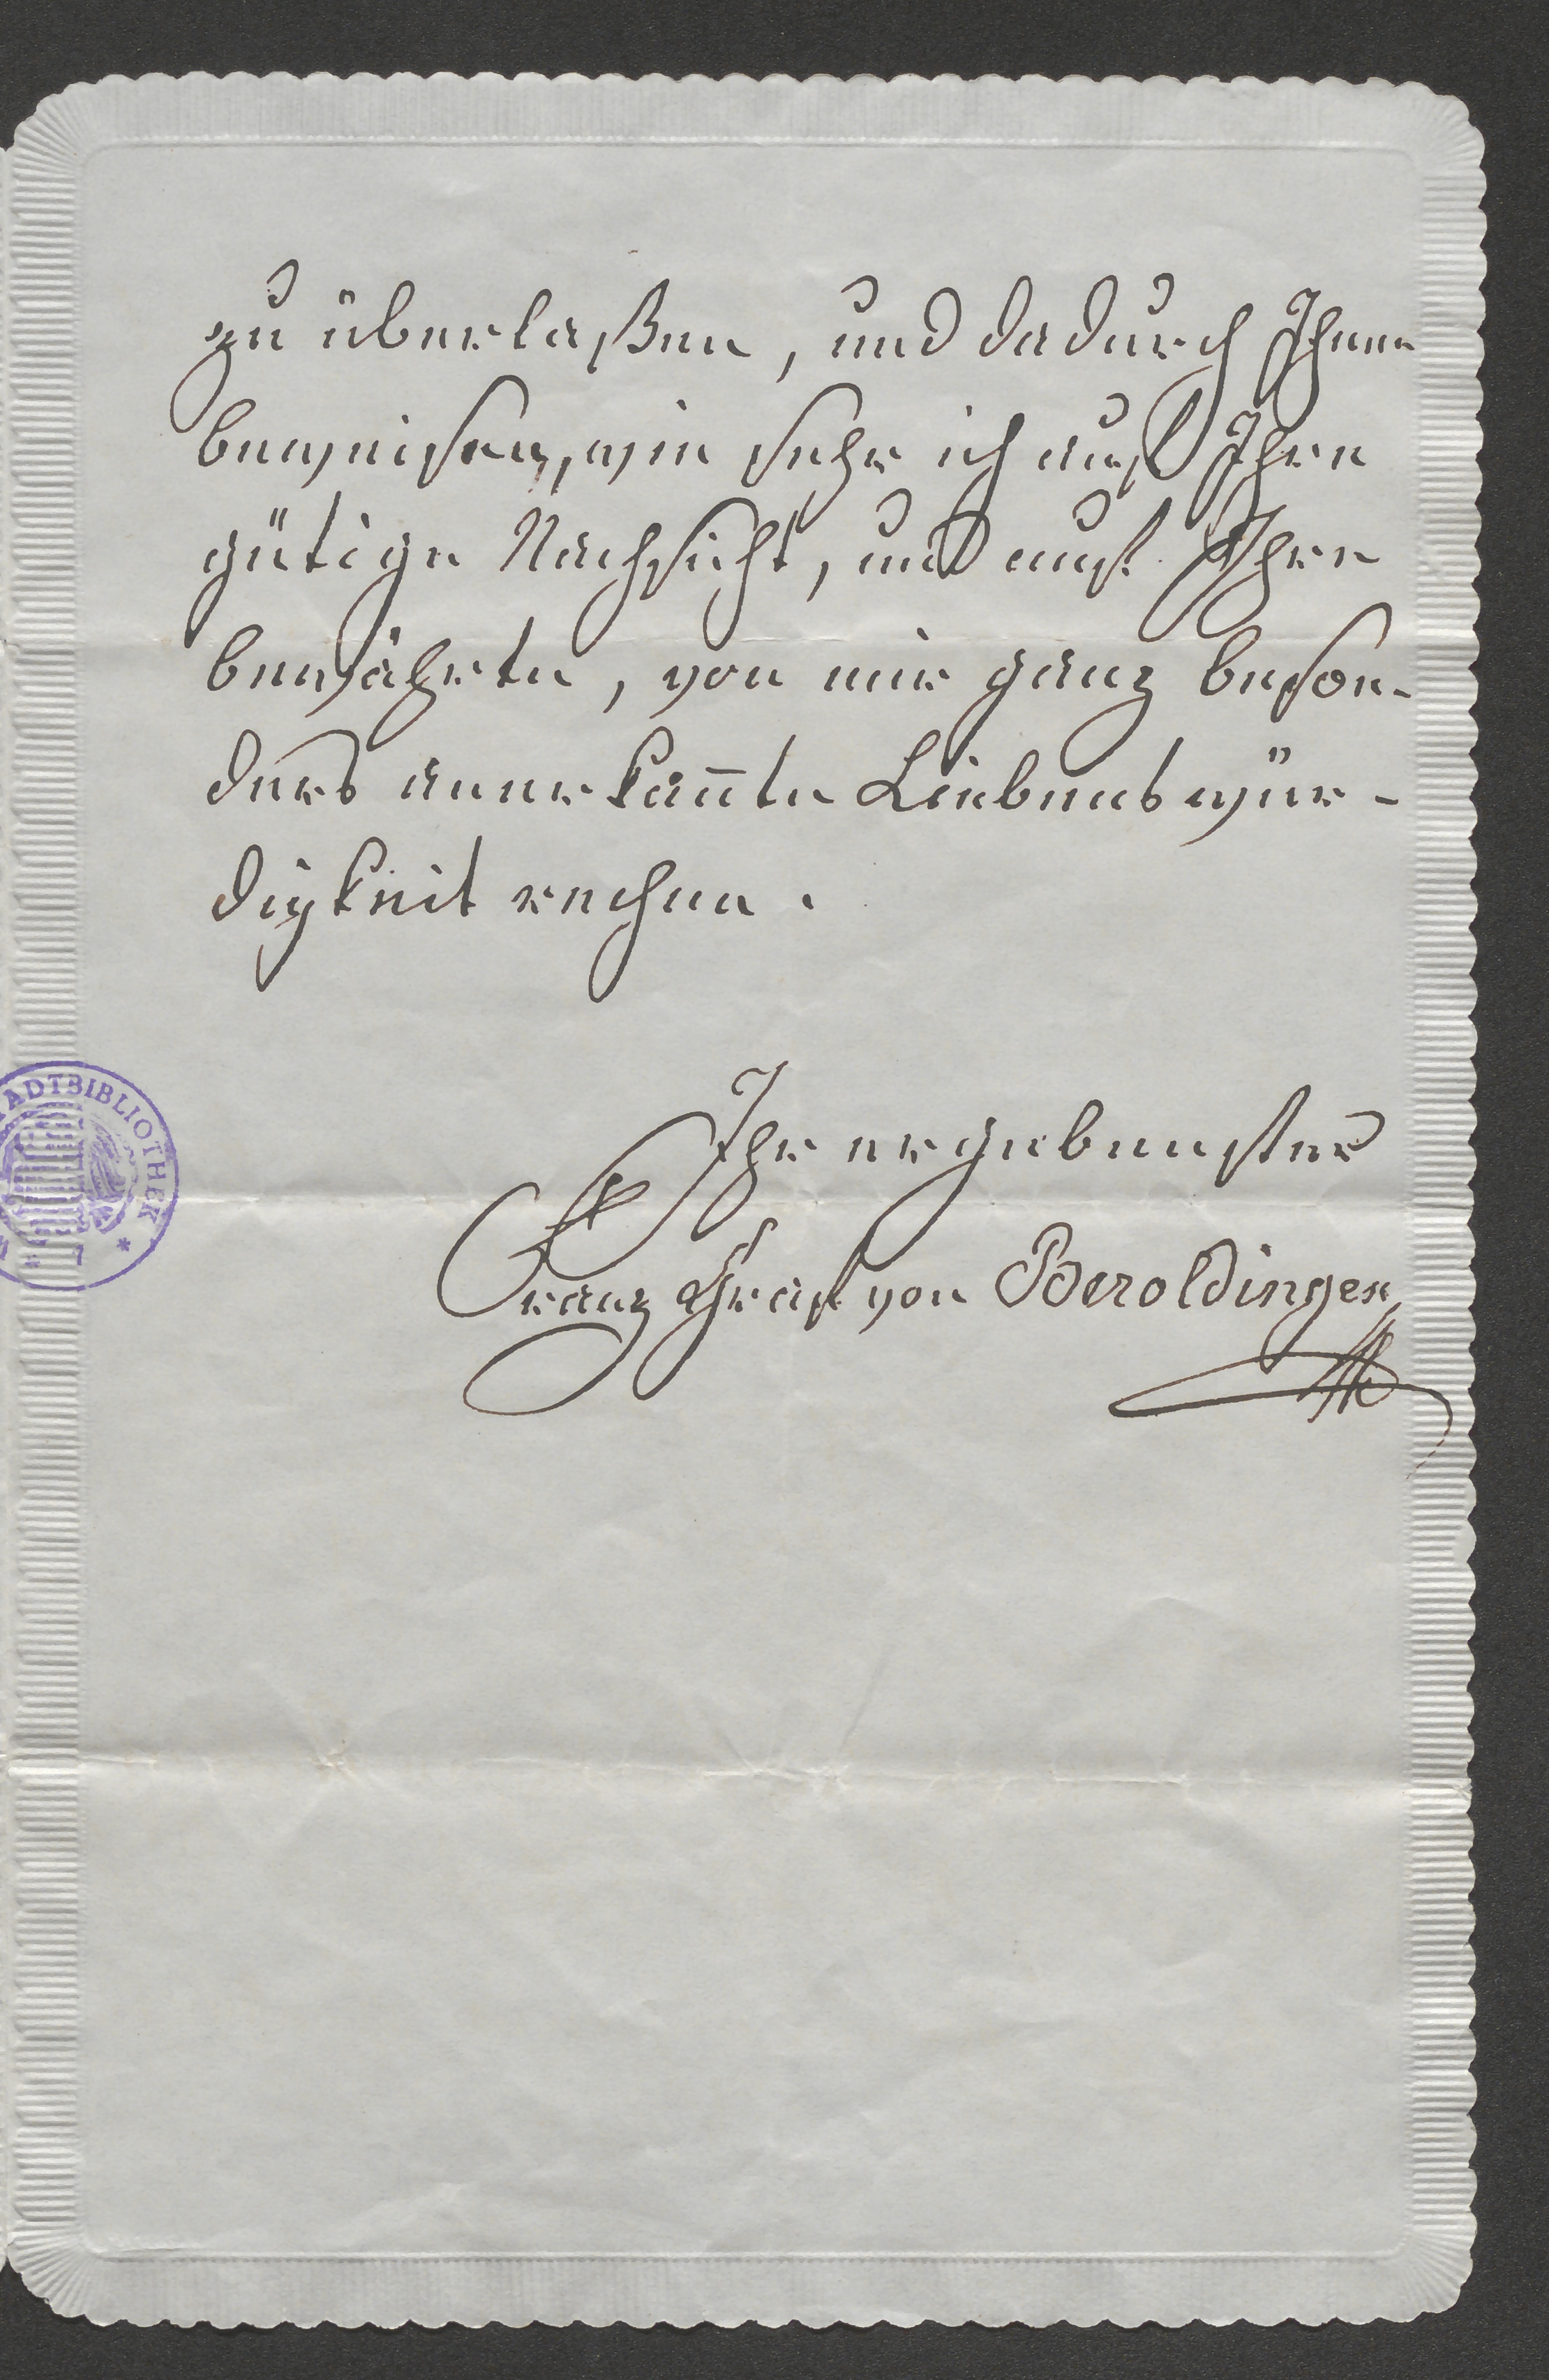 zu überlaßen, und dadurch Ihnen
beweisen, wie sehr ich auf Ihre
gütige Nachsicht, und auf Ihre
bewährte, von mir ganz beson-
ders anerkan̄te Liebenswür-
digkeit rechne.
Ihr ergebenster
Franz Graf von Beroldingen
ADTBIBLIOTHEK
* 7 *